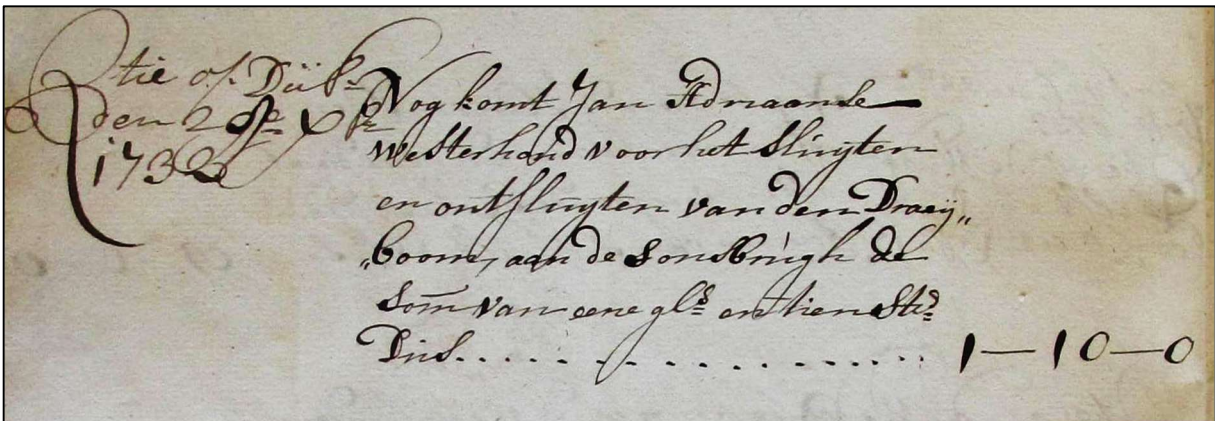 Qtie of Dijkr
den 28e Xbr
1732
Nog komt Jan Adriaanse
Westerhand voor het sluyten
en ontsluyten van den Draeij„
„boom, aan de sonsbrugh de
som van eene gls en tien sts
Dus. . . . . . . . . . . . . . . 1—10—0